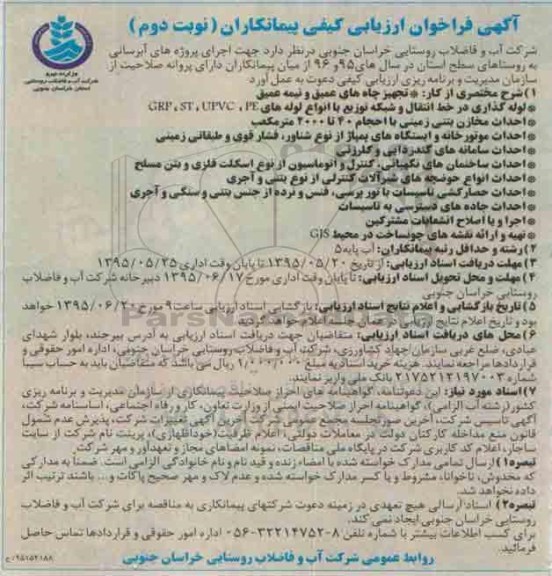 آگهی فراخوان ارزیابی کیفی پیمانکاران (نوبت دوم)
وزارت نیرو
شرکت آب و فاضلاب روستایی
استان خراسان جنوبی
شرکت آب و فاضلاب روستایی خراسان جنوبی درنظر دارد جهت اجرای پروژه های آبرسانی
به روستاهای سطح استان در سال های ۹۵ و ۹۶ از میان پیمانکاران دارای پروانه صلاحیت از
سازمان مدیریت و برنامه ریزی ارزیابی کیفی دعوت به عمل آورد
۱) شرح مختصری از کار: * تجهیز چاه های عمیق و نیمه عمیق
* لوله گذاری در خط انتقال و شبکه توزیع با انواع لوله های GRP , ST , UPVC , PE
* احداث مخازن بتنی زمینی با احجام ۴۰ تا ۲۰۰۰ مترمکعب
* احداث موتورخانه و ایستگاه های پمپاژ از نوع شناور، فشار قوی و طبقاتی زمینی
* احداث سامانه های گندزدایی و کلرزنی
* احداث ساختمان های نگهبانی، کنترل و اتوماسیون از نوع اسکلت فلزی و بتن مسلح
* احداث انواع حوضچه های شیرآلات کنترلی از نوع بتنی و آجری
* احداث حصارکشی تاسیسات با نور پرسی، فنس و نرده از جنس بتنی و سنگی و آجری
* احداث جاده های دسترسی به تاسیسات
* اجرا و یا اصلاح انشعابات مشترکین
* تهیه و ارائه نقشه های چونساخت در محیط GIS
۲) رشته و حداقل رتبه پیمانکاران: آب پایه ۵
۳) مهلت دریافت اسناد ارزیابی: از تاریخ ۱۳۹۵/۰۵/۲۰ تا پایان وقت اداری ۱۳۹۵/۰۵/۲۵
۴) مهلت و محل تحویل اسناد ارزیابی: تا پایان وقت اداری مورخ ۱۳۹۵/۰۶/۱۷ دبیرخانه شرکت آب و فاضلاب
روستایی خراسان جنوبی
۵) تاریخ بازگشایی و اعلام نتایج اسناد ارزیابی: بازگشایی اسناد ارزیابی ساعت ۹ مورخ ۱۳۹۵/۰۶/۲۰ خواهد
بود و تاریخ اعلام نتایج ارزیابی در همان جلسه اعلام خواهد گردید
۶) محل های دریافت اسناد ارزیابی: متقاضیان جهت دریافت اسناد ارزیابی به آدرس بیرجند، بلوار شهدای
عبادی، ضلع غربی سازمان جهاد کشاورزی، شرکت آب و فاضلاب روستایی خراسان جنوبی، اداره امور حقوقی و
قراردادها مراجعه نمایند. هزینه خرید اسناد به مبلغ ۱/۰۰۰/۰۰۰ ریال می باشد که متقاضیان باید به حساب سیبا
شماره ۲۱۷۵۲۱۲۱۹۷۰۰۳ بانک ملی واریز نمایند.
۷) اسناد مورد نیاز: این دعوتنامه، گواهینامه های احراز صلاحیت پیمانکاری از سازمان مدیریت و برنامه ریزی
کشور (رشته آب الزامی)، گواهینامه احراز صلاحیت ایمنی از وزارت تعاون، کار و رفاه اجتماعی، اساسنامه شرکت،
آگهی تأسیس شرکت، آخرین صورتجلسه مجمع شرکت، آخرین آگهی تغییرات شرکت، پذیرش عدم شمول
قانون منع مداخله کارکنان دولت در معاملات دولتی، اعلام ظرفیت (خوداظهاری)، پرینت نام شرکت از سایت
ساجار، اعلام کد کاربری شرکت در پایگاه ملی مناقصات، نمونه امضاهای مجاز و تعهدآور و مهر شرکت
تبصره ۱) ارسال تمامی مدارک خواسته شده با امضاء زنده و قید نام و نام خانوادگی الزامی است. ضمناً به مدارکی
که مخدوش، ناخوانا، مشروط و یا کسر مدارک خواسته شده و عدم لاک و مهر صحیح پاکات و... باشند ترتیب اثر
داده نخواهد شد.
تبصره ۲) اسناد ارسالی هیچ تعهدی در زمینه دعوت شرکتهای پیمانکاری به مناقصه برای شرکت آب و فاضلاب
روستایی خراسان جنوبی ایجاد نمی کند.
برای کسب اطلاعات بیشتر با شماره تلفن ۸-۳۲۲۱۴۷۵۲-۰۵۶ اداره امور حقوقی و قراردادها تماس حاصل
فرمائید.
روابط عمومی شرکت آب و فاضلاب روستایی خراسان جنوبی
۹۵۱۵۲۱۸۸/ع